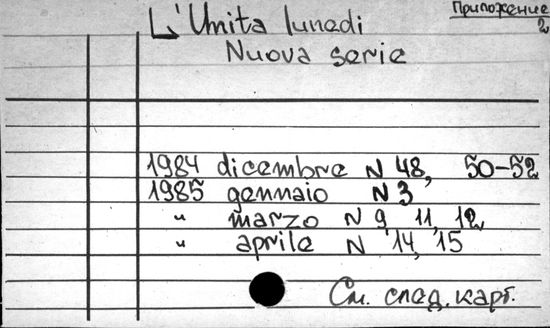 Приложение
2
L'Unita lunedi
Nuova serie
1984 dicembre N 48, 50-52
1985 gennaio N 3
" marzo N 9, 11, 12
" aprile N 14, 15
См. след. карт.